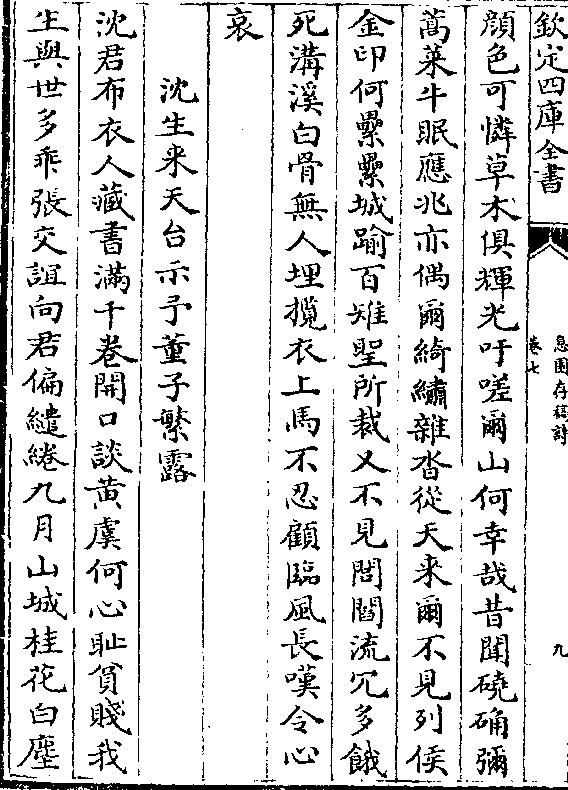 欽定四庫全書
息園存稿詩
卷七
九
顔色可憐草木俱輝光吁嗟爾山何幸哉昔聞磽确彌
蒿萊牛眠應兆亦偶爾綺繡雜沓從天來爾不見列侯
金印何纍纍城踰百雉聖所裁又不見閭閻流冗多餓
死溝溪白骨無人埋攬衣上馬不忍顧臨風長嘆令心
哀
沈生来天台示予董子繁露
沈君布衣人藏書滿千卷開口談黄虞何心恥貧賤我
生與世多乖張交誼向君偏繾綣九月山城桂花白塵